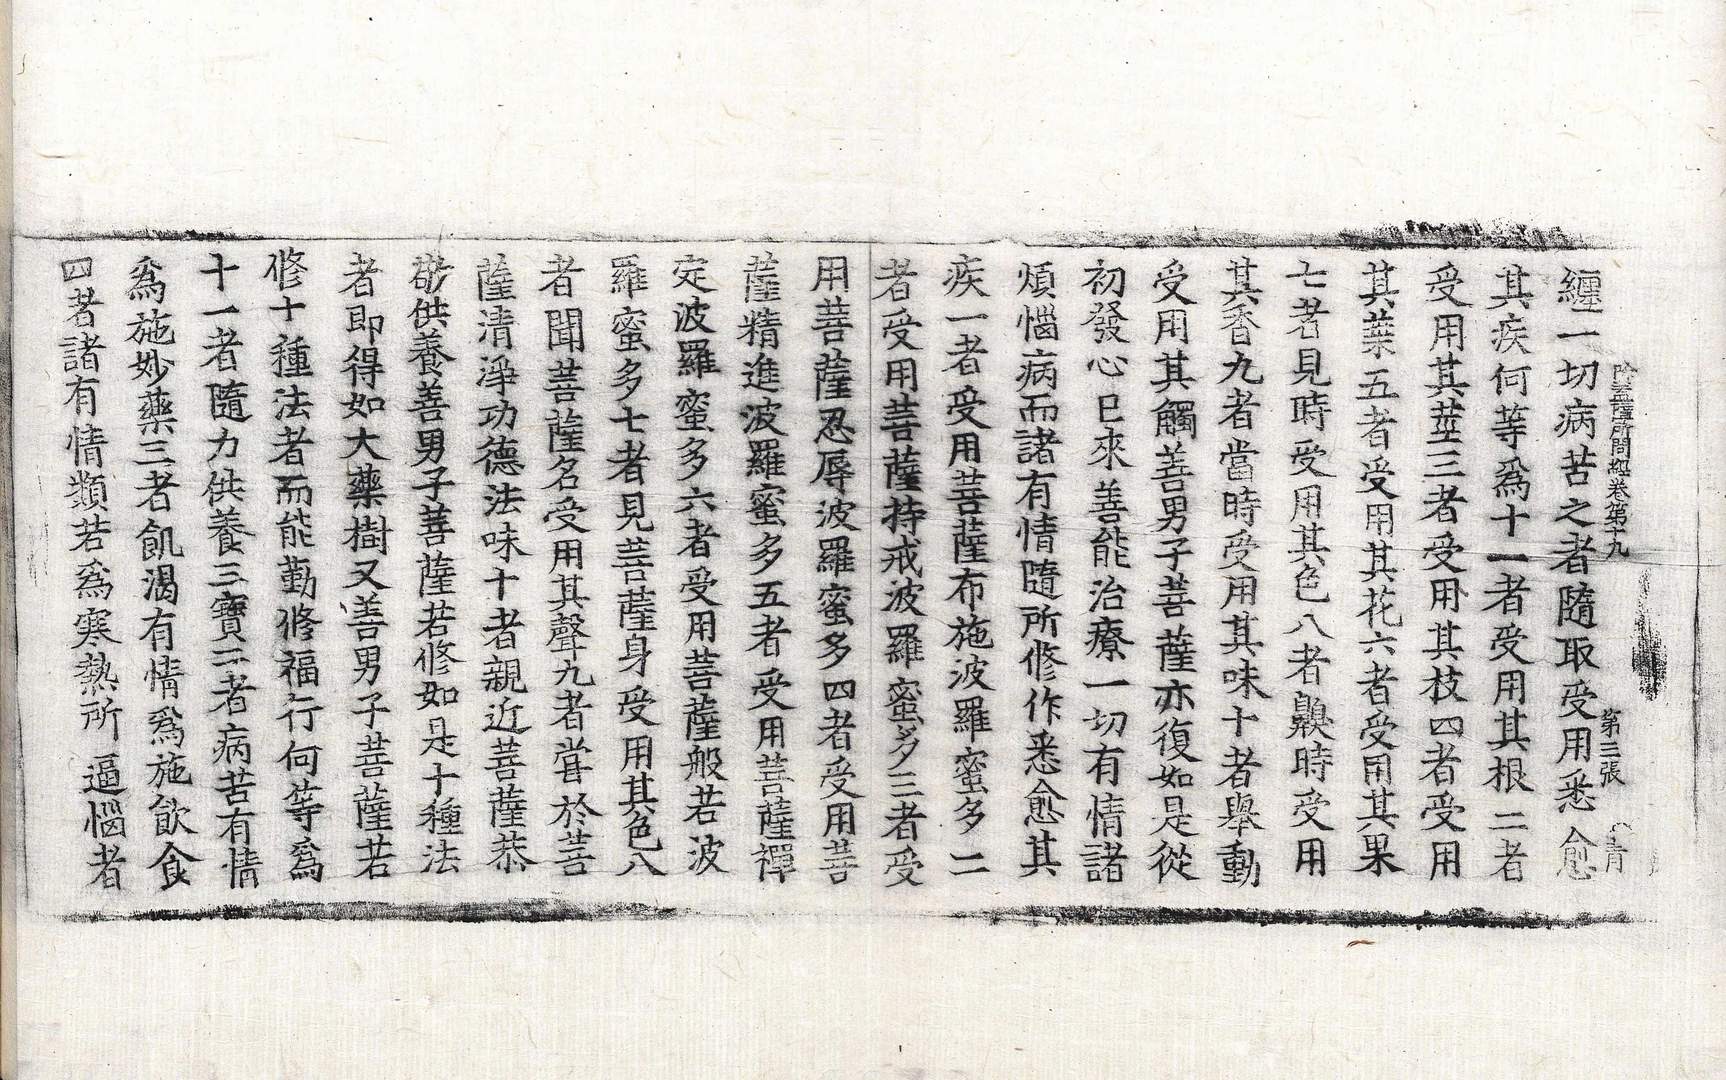 蓋薩所問經卷第十九 第三張 青
纏一切病苦之者隨取受用悉愈
其疾何等爲十一者受用其根二者
受用其莖三者受用其枝四者受用
其葉五者受用其花六者受用其果
七者見時受用其色八者齅時受用
其香九者當時受用其味十者舉動
受用其觸善男子菩薩亦復如是從
初發心已來善能治療一切有情諸
煩惱病而諸有情隨所修作悉愈其
疾一者受用菩薩布施波羅蜜多二
者受用菩薩持戒波羅蜜多三者受
用菩薩忍辱波羅蜜多四者受用菩
薩精進波羅蜜多五者受用菩薩禪
定波羅蜜多六者受用菩薩般若波
羅蜜多七者見菩薩身受用其色八
者聞菩薩名受用其聲九者嘗於菩
薩清淨功德法味十者親近菩薩恭
敬供養善男子菩薩若修如是十種法
者即得如大藥樹又善男子菩薩若
修十種法者而能勤修福行何等爲
十一者隨力供養三寶二者病苦有情
爲施妙藥三者飢渴有情爲施飮食
四者諸有情類若爲寒熱所逼惱者